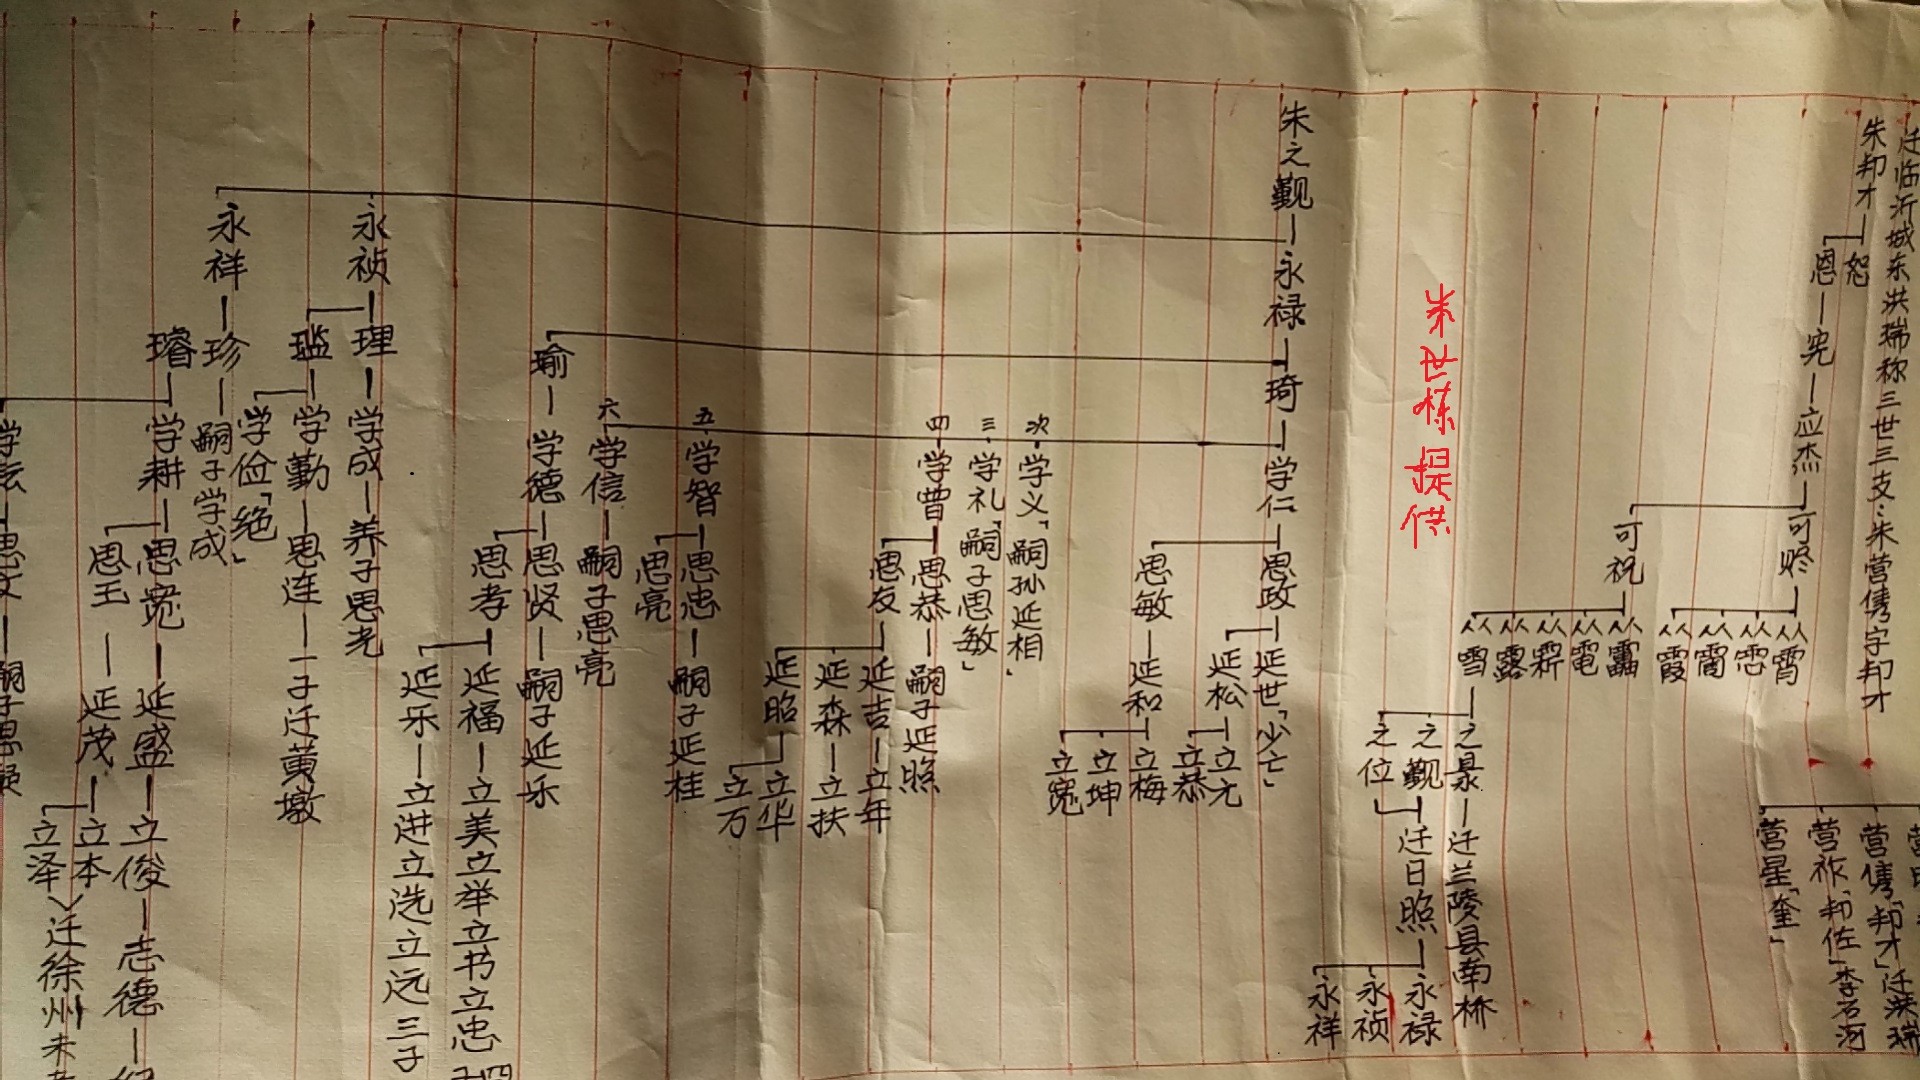 迁临沂城东洪瑞称三世三支:朱营儁字邦才
朱邦才
恕
恩
宪
应杰
可
可祝
霄
霞
電
露
雪
之
之觐
之位
迁兰陵县南桥
迁日照
永禄
永祯
永祥
营儁「邦才」迁洪瑞
营祚「邦佐」李石河
营星「奎」
朱世栋提供
朱之觐
永禄
永祯
永祥
琦
瑜
理
珍
璿
学仁
次 学义「嗣孙延相」
三 学礼「嗣子思敏」
四 学曾
五 学智
六 学信
嗣子思亮
学德
学成
养子思光
学勤
学俭「绝」
嗣子学成
学耕
思政
思敏
思恭
嗣子延照
思友
思忠
嗣子延桂
思亮
思贤
嗣子延乐
思孝
思连
一子迁黄墩
思宽
思玉
延世「少亡」
延松
延和
延吉
延森
延昭
延福
延乐
延盛
延茂
立元
立恭
立梅
立坤
立宽
立年
立扶
立华
立万
立美立举立书立忠
立进立选立远三子
立俊
志德
立本
立泽
迁徐州未